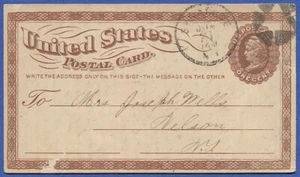 United States
POSTAL CARD.
WRITE THE ADDRESS ONLY ON THIS SIDE - THE MESSAGE ON THE OTHER
To Mrs Joseph Wells
Nelson